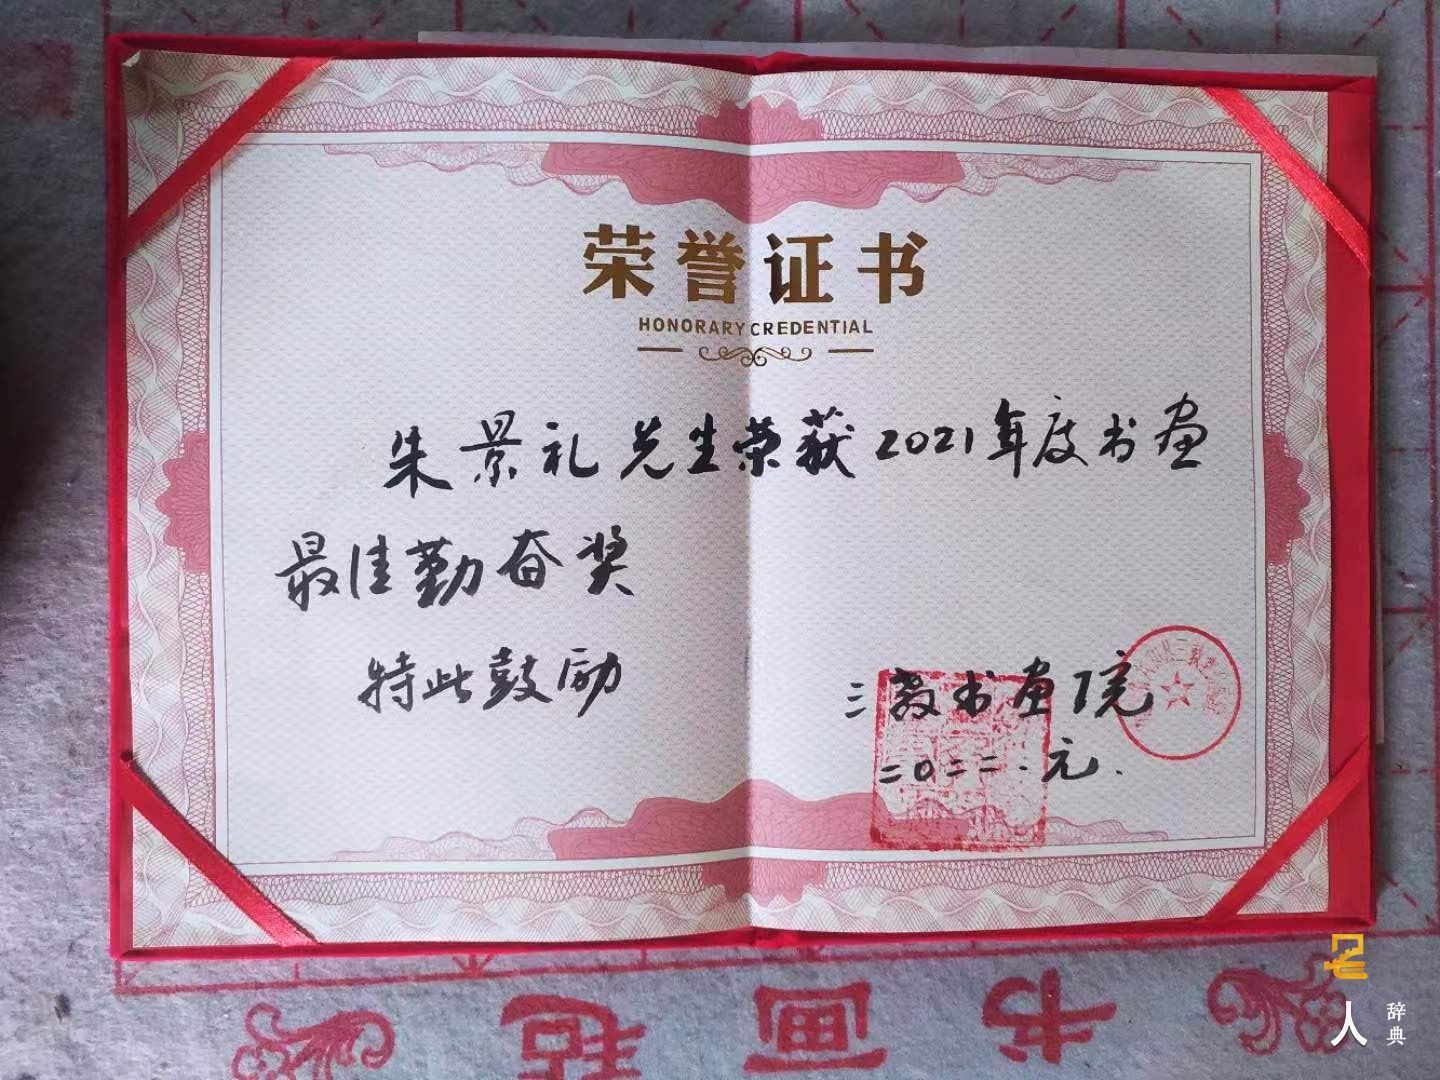 荣誉证书
HONORARY CREDENTIAL
朱景礼先生荣获2021年度书画
最佳勤奋奖
特此鼓励
三教书画院
二〇二二.元.
书画毡
名人
辞典